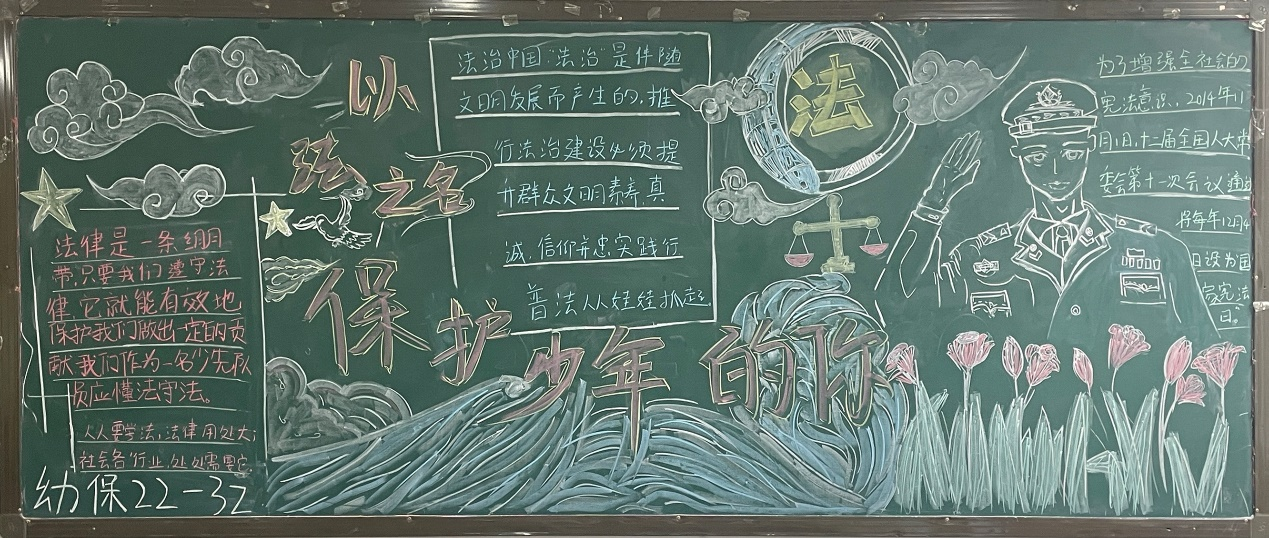 以
法
之名
保护少年的你
法律是一条绷
带,只要我们遵守法
律,它就能有效地
保护我们做出一定的贡
献我们作为一名少先队
员应懂法守法。
人人要学法,法律用处大;
社会各行业,处处需要它
幼保22-32
法治中国"法治"是伴随
文明发展而产生的,推
行法治建设必须提
升群众文明素养,真
诚,信仰并忠实践行
普法从娃娃抓起
法
为了增强全社会的
宪法意识,2014年11
月1日,十二届全国人大常
委会第十一次会议通过
将每年12月4
日设为国
家宪法
日。